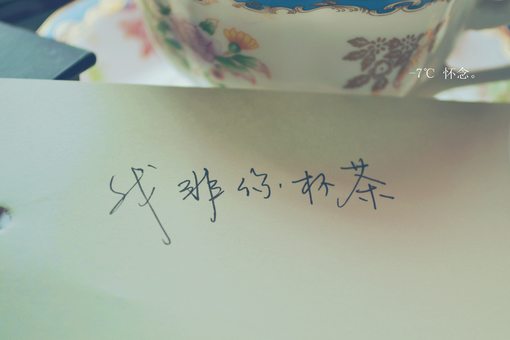 -7℃ 怀念。
我非你·杯茶